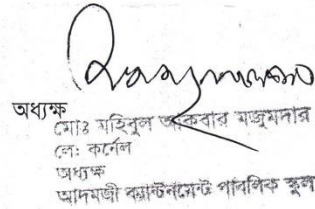 অধ্যক্ষ
মোঃ মহিবুল আকবার মজুমদার
লেঃ কর্নেল
অধ্যক্ষ
আদমজী ক্যান্টনমেন্ট পাবলিক স্কুল